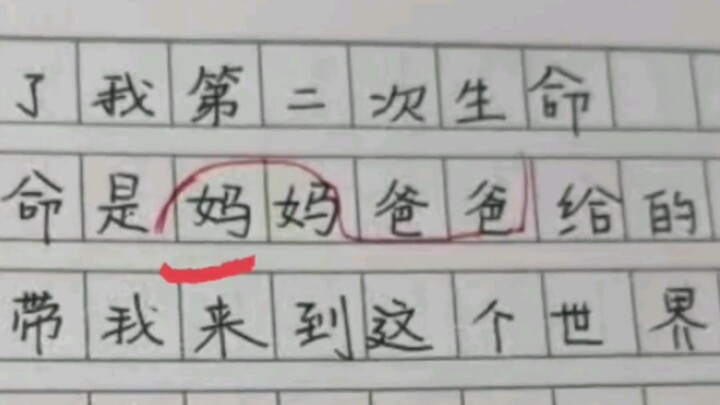 了我第二次生命
命是妈妈爸爸给的
带我来到这个世界